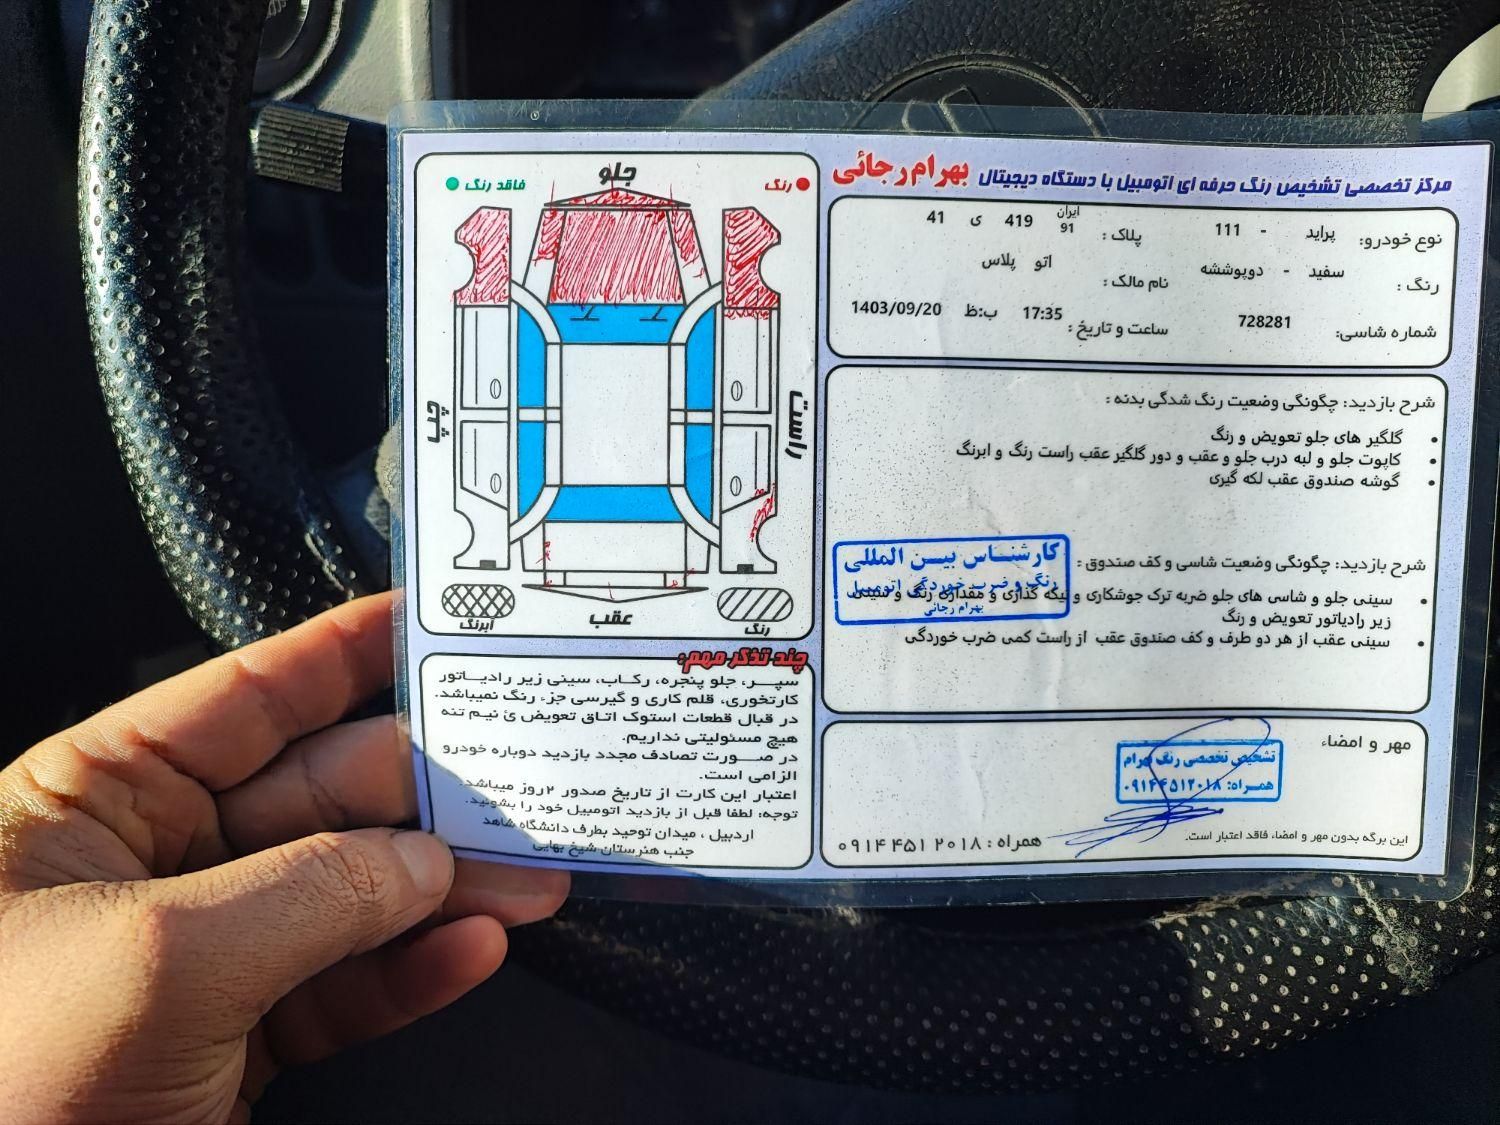 مرکز تخصصی تشخیص رنگ حرفه ای اتومبیل با دستگاه دیجیتال بهرام رجائی
نوع خودرو: پراید - 111 پلاک : ایران 91 419 ی 41
رنگ : سفید - دوپوششه نام مالک : اتو پلاس
شماره شاسی: 728281 ساعت و تاریخ : 17:35 ب:ظ 1403/09/20
شرح بازدید: چگونگی وضعیت رنگ شدگی بدنه :
• گلگیر های جلو تعویض و رنگ
• کاپوت جلو و لبه درب جلو و عقب و دور گلگیر عقب راست رنگ و ابرنگ
• گوشه صندوق عقب لکه گیری
شرح بازدید: چگونگی وضعیت شاسی و کف صندوق :
• سینی جلو و شاسی های جلو ضربه ترک جوشکاری و تیکه گذاری و مقداری رنگ و سینی
زیر رادیاتور تعویض و رنگ
• سینی عقب از هر دو طرف و کف صندوق عقب از راست کمی ضرب خوردگی
کارشناس بین المللی
رنگ و ضرب خوردگی اتومبیل
بهرام رجائی
مهر و امضاء
تشخیص تخصصی رنگ بهرام
همراه: ۰۹۱۴۴۵۱۲۰۱۸
این برگه بدون مهر و امضاء فاقد اعتبار است.
همراه : ۰۹۱۴ ۴۵۱ ۲۰۱۸
رنگ
جلو
فاقد رنگ
راست
چپ
رنگ
عقب
آبرنگ
چند تذکر مهم:
سپر، جلو پنجره، رکاب، سینی زیر رادیاتور
کارتخوری، قلم کاری و گیرسی جزء رنگ نمیباشد.
در قبال قطعات استوک اتاق تعویض ئ نیم تنه
هیچ مسئولیتی نداریم.
در صورت تصادف مجدد بازدید دوباره خودرو
الزامی است.
اعتبار این کارت از تاریخ صدور ۲روز میباشد.
توجه: لطفا قبل از بازدید اتومبیل خود را بشوئید.
اردبیل ، میدان توحید بطرف دانشگاه شاهد
جنب هنرستان شیخ بهایی